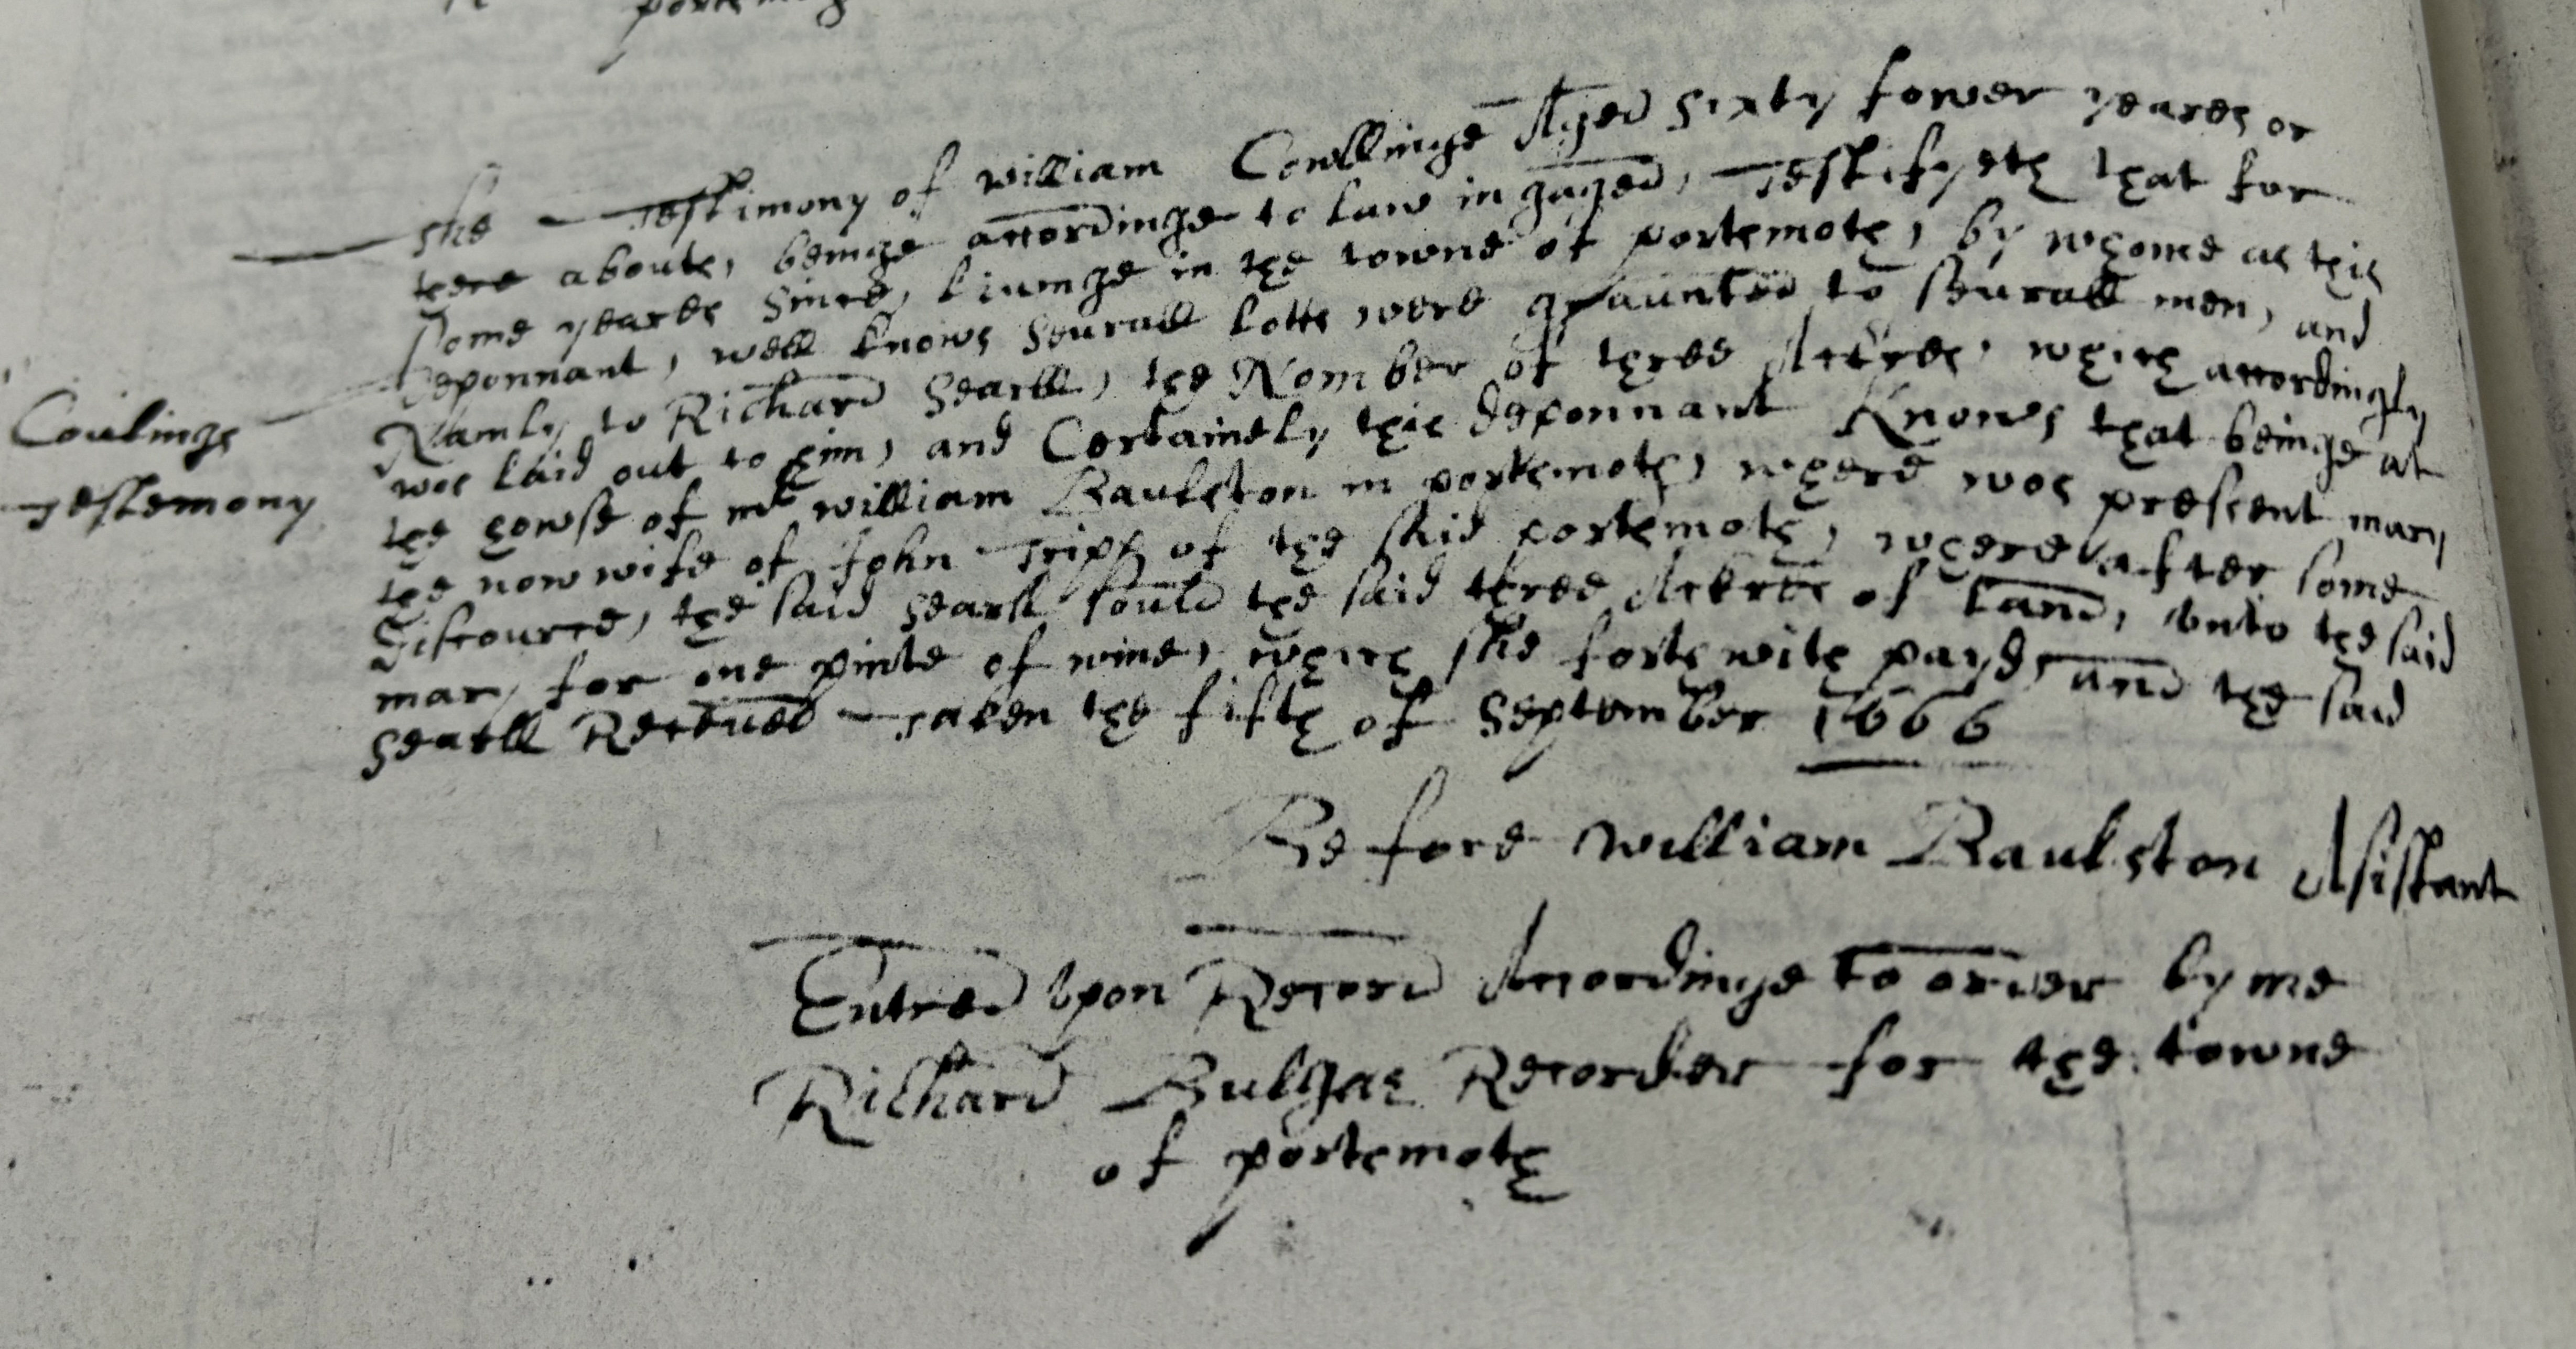 The Testimony of william Cowllinge Aged sixty fower yeares or
there aboute, beinge accordinge to law ingaged, Testifyeth that for
some yeares since, liuinge in the towne of portsmoth, by whome as this
Deponnant, well knows seurall lotts were graunted to seurall men, and
Namly to Richard Searll, the Nomber of three Ackres, which accordingly
was laid out to him, and Certainely this deponnant Knows that beinge at
the howse of mr william Baulston in portsmoth, where was present mary
the now wife of John Tripp of the said portsmoth, where after some
Discource, the said Searll sould the said three Ackres of land, vnto the said
mary for one pinte of wine, which she forthwith payd, and the said
Searll Receued Taken the fifth of September 1666
Coulings
Testemony
Before william Baulston Asistant
Entred vpon Record Accordinge to order by me
Richard Bulgar Recorder for the towne
of portsmoth